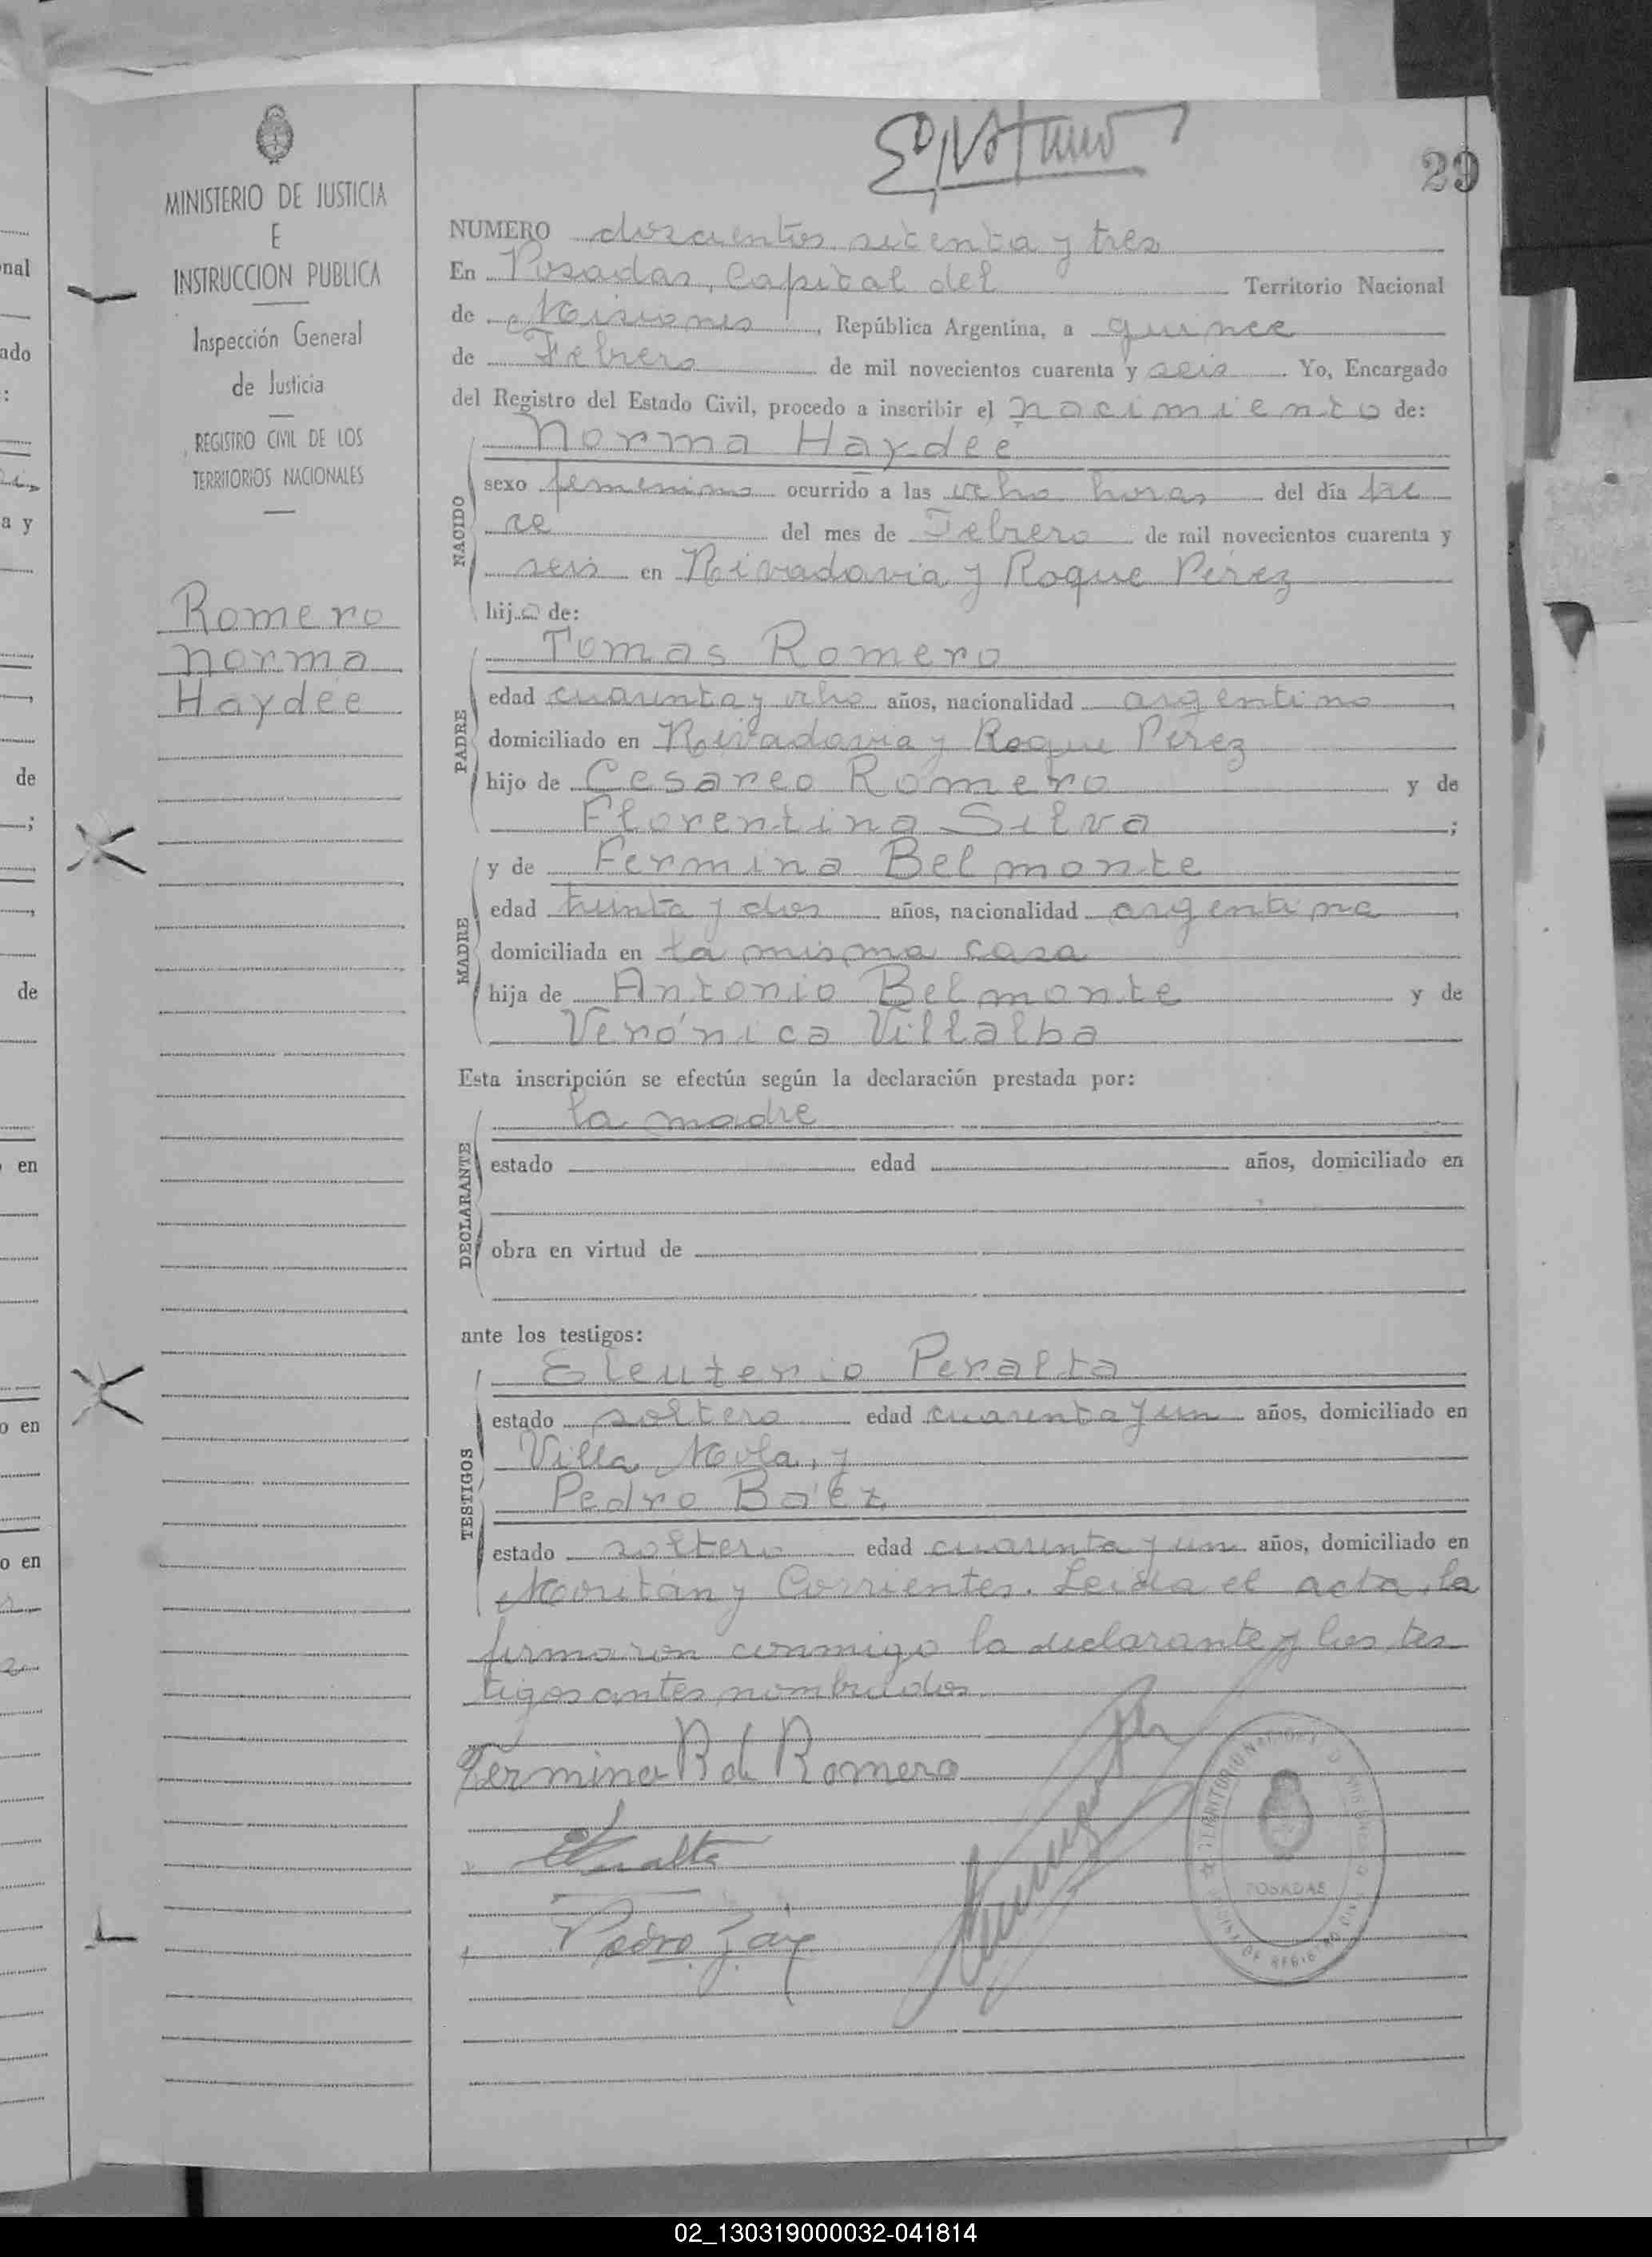 29
MINISTERIO DE JUSTICIA
E
INSTRUCCION PUBLICA
Inspección General
de Justicia
REGISTRO CIVIL DE LOS
TERRITORIOS NACIONALES
Romero
Norma
Haydée
NUMERO doscientos setenta y tres
En Posadas, Capital del Territorio Nacional
de Misiones, República Argentina, a quince
de Febrero de mil novecientos cuarenta y seis. Yo, Encargado
del Registro del Estado Civil, procedo a inscribir el nacimiento de:
Norma Haydee
NACIDO
sexo femenino ocurrido a las ocho horas del día tre
ce del mes de Febrero de mil novecientos cuarenta y
seis en Rivadavia y Roque Pérez
hija de:
Tomas Romero
PADRE
edad cuarenta y ocho años, nacionalidad argentino
domiciliado en Rivadavia y Roque Pérez
hijo de Cesareo Romero y de
Florentina Silva;
y de Fermina Belmonte
MADRE
edad treinta y dos años, nacionalidad argentina
domiciliada en la misma casa
hija de Antonio Belmonte y de
Verónica Villalba
Esta inscripción se efectúa según la declaración prestada por:
la madre
DECLARANTE
estado edad años, domiciliado en
obra en virtud de
ante los testigos:
Eleuterio Peralta
TESTIGOS
estado soltero edad cuarenta y un años, domiciliado en
Villa Mola, y
Pedro Báez
estado soltero edad cuarenta y un años, domiciliado en
y Corrientes. Leida el acta, la
firmaron conmigo la declarante y los tes
tigos antes nombrados
Fermina B de Romero
EPeralta
Pedro
TERRITORIO NACIONAL D MISIONES
POSADAS
02_130319000032-041814